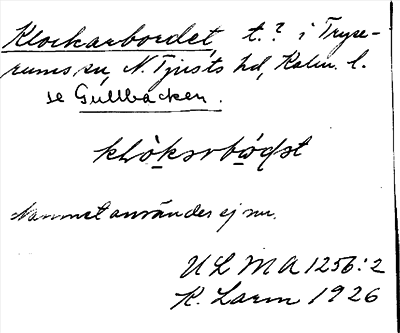 Klockarbordet, t.? i Tryse-
rums sn, N. Tjusts hd, Kalm. l.
se Gullbäcken.
klòksrbóḍst
Namnet användes ej nu.
ULMA 1256:2
K. Larm 1926